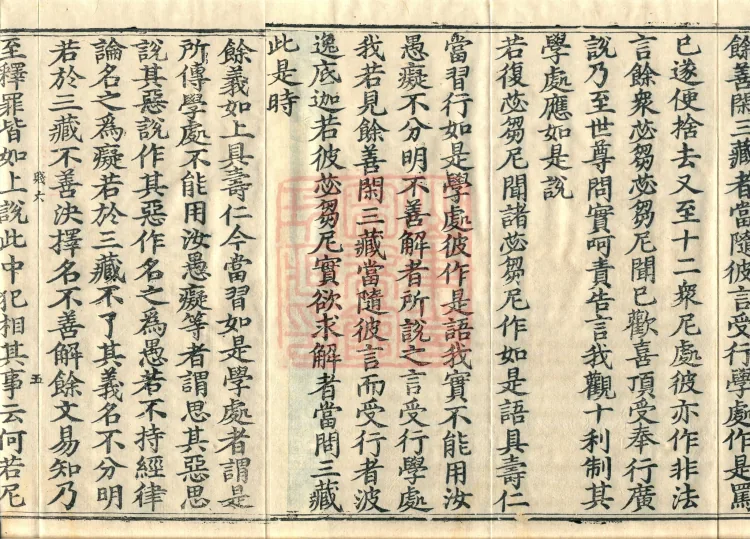 餘善閑三藏者當隨彼言受行學處作是罵
已遂便捨去又至十二衆尼處彼亦作非法
言餘衆苾芻苾芻尼聞已歡喜頂受奉行廣
說乃至世尊問實呵責告言我觀十利制其
學處應如是說
若復苾芻尼聞諸苾芻尼作如是語具壽仁
當習行如是學處彼作是語我實不能用汝
愚癡不分明不善解者所說之言受行學處
我若見餘善閑三藏當隨彼言而受行者波
逸底迦若彼苾芻尼實欲求解者當問三藏
此是時
餘義如上具壽仁今當習如是學處者謂是
所傳學處不能用汝愚癡等者謂思其惡思
說其惡說作其惡作名之爲愚若不持經律
論名之爲癡若於三藏不了其義名不分明
若於三藏不善決擇名不善解餘文易知乃
五
至釋罪皆如上說此中犯相其事云何若尼